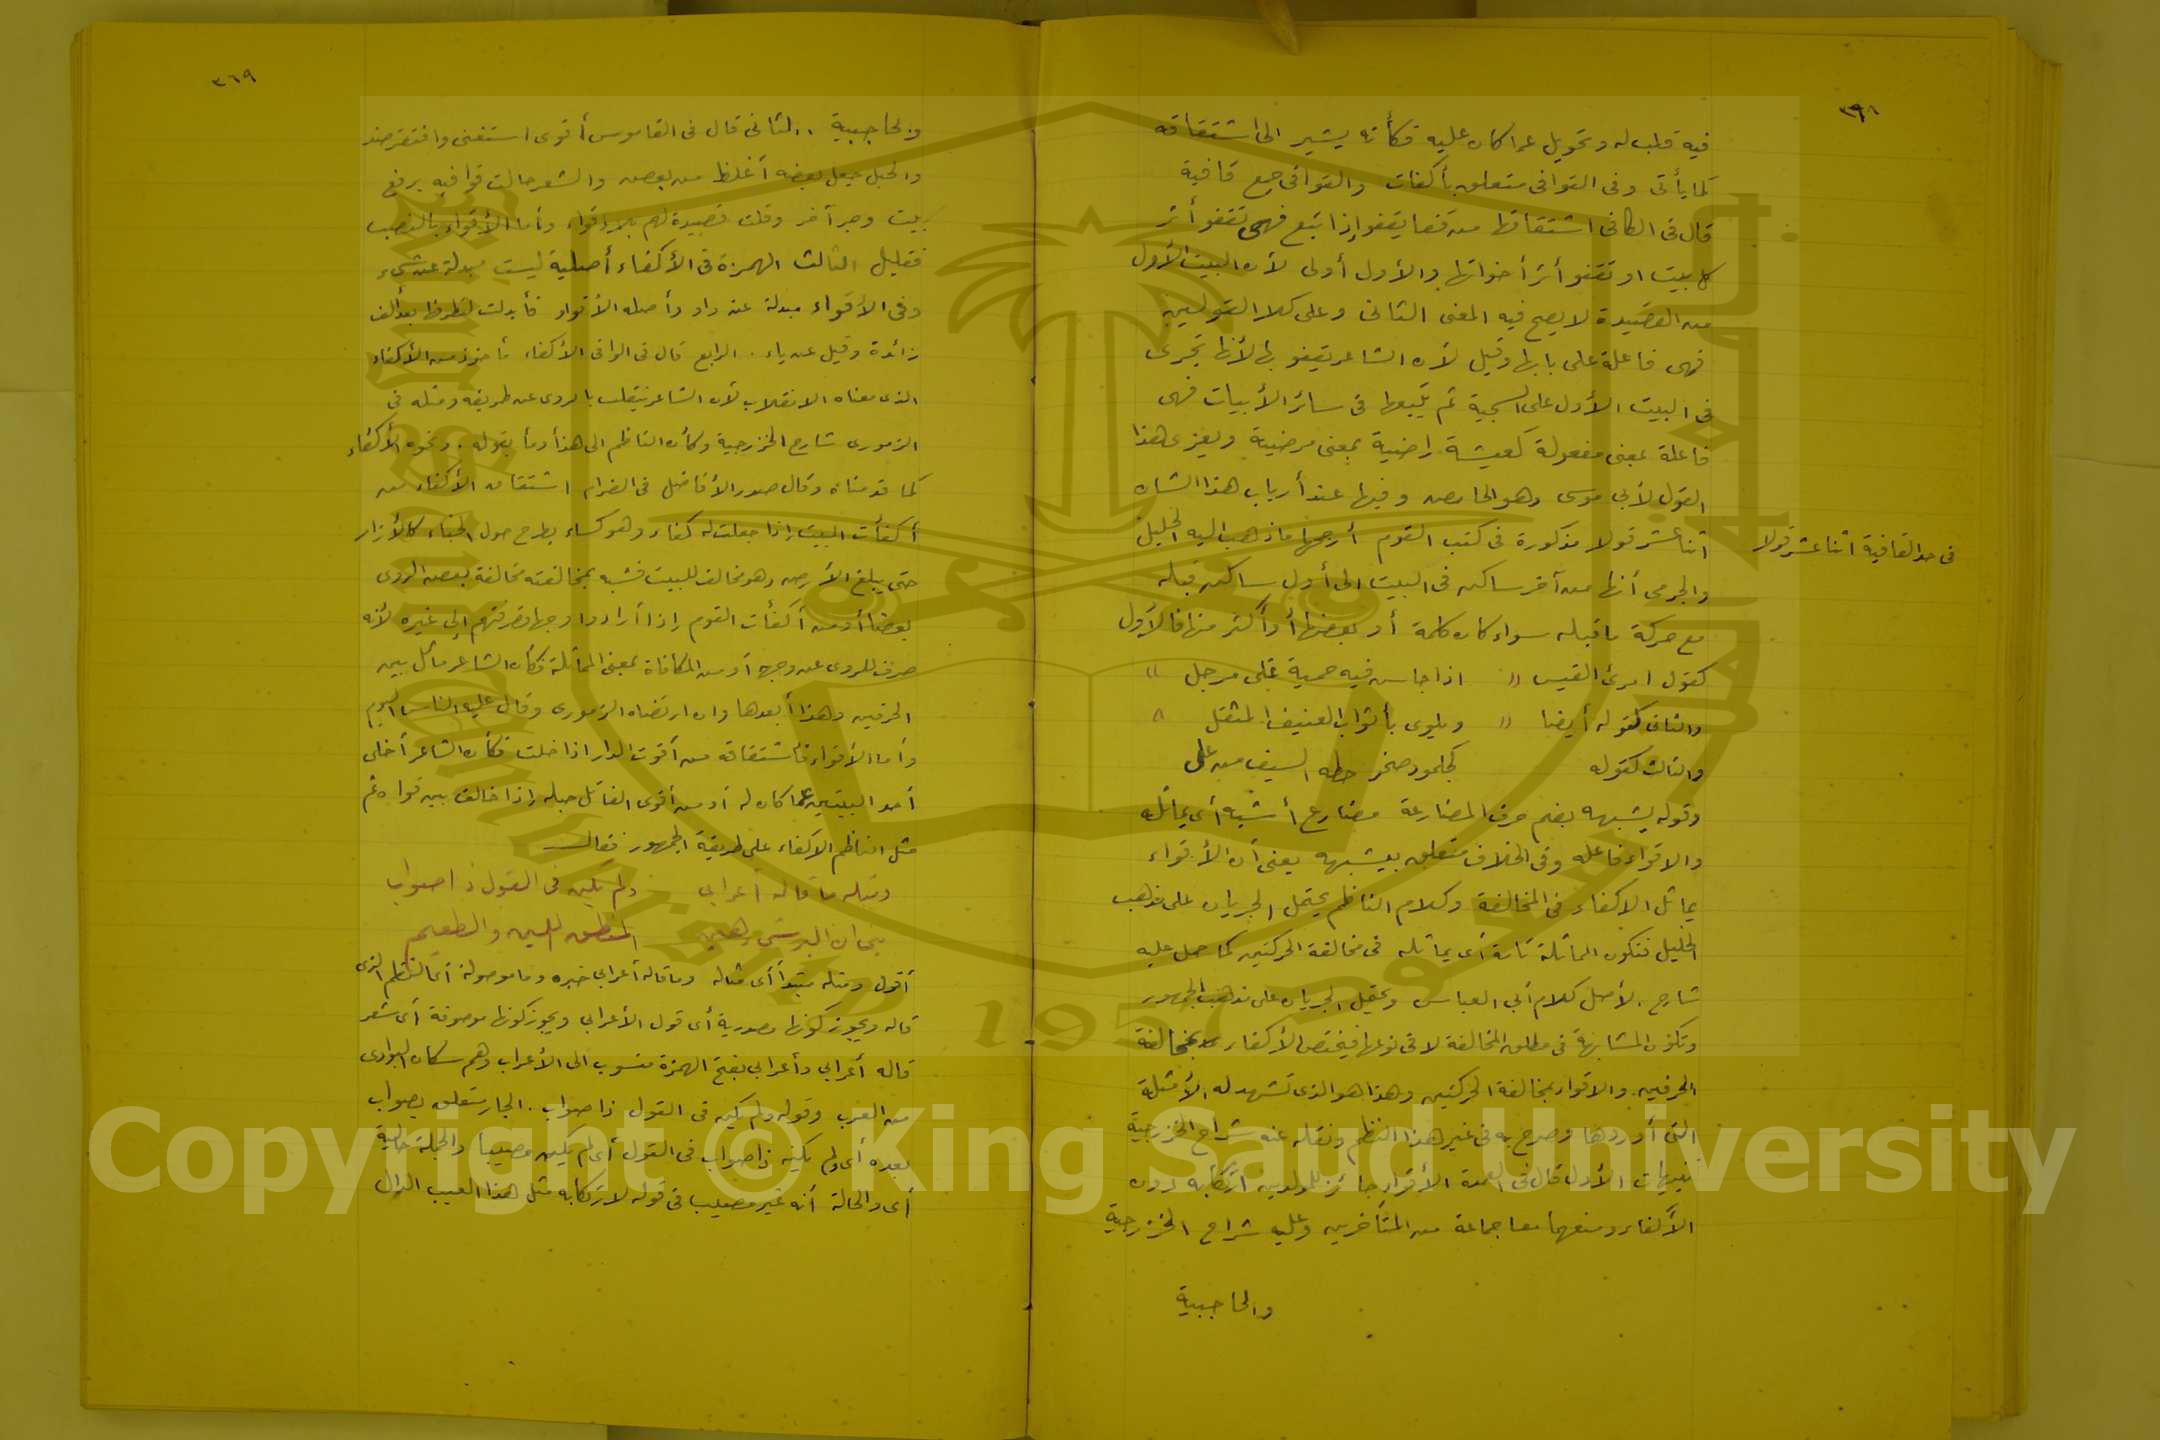 ٣٦٨
فيه قلب له وتحويل عما كان عليه فكأنه يشير الى اشتقاقه
كما يأتى وفى القوافى متعلق بأكفات والقوافى جمع قافية
قال فى الكافى اشتقاقها من قفا يقفو إذا تبع فهى تقفو أثر
كل بيت او تقفو أثر أخواتها والأول أولى لأن البيت الأول
من القصيدة لا يصح فيه المعنى الثانى وعلى كلا القولين
فهى فاعلة على بابها وقيل لأن الشاعر يقفو بها لأنها تجرى
فى البيت الأول على السجية ثم يتبعها فى سائر الأبيات فهى
فاعلة بمعنى مفعولة كعيشة راضية بمعنى مرضية ويعزى هذا
القول لأبى موسى وهو الحامض وفيها عند أرباب هذا الشان
اثنا عشر قولا مذكورة فى كتب القوم أرجحها ما ذهب اليه الخليل
فى حد القافية اثنا عشر قولا
والجرمى أنها من آخر ساكن فى البيت الى أول ساكن قبله
مع حركة ما قبله سواء كان كلمة أو بعضها أو أكثر منها فالأول
كقول امرئ القيس " اذا جاس فيه حمية غلى مرجل "
والثانى كقوله أيضا " ويلوى بأثواب العنيف المثقل "
والثالث كقوله كجلمود صخر حطه السيف من على
وقوله يشبهه بضم حرف المضارعة مضارع أشبه أى يماثله
والاقواء فاعله وفى الخلاف متعلق بيشبهه يعنى أن الأقواء
يماثل الاكفاء فى المخالفة وكلام الناظم يحتمل الجريان على مذهب
الخليل فتكون المماثلة تامة أى يماثله فى مخالفة الحركتين كما حمل عليه
شارح الأصل كلام أبى العباس ويحتمل الجريان على مذهب الجمهور
وتكون المشابهة فى مطلق المخالفة لا فى نوعها فيختص الأكفاء بمخالفة
الحرفين والاقواء بمخالفة الحركتين وهذا هو الذى تشهد له الأمثلة
التى أوردها وصرح به فى غير هذا النظم ونقله عنه شراح الخزرجية
تنبيهات الأول قال فى العمدة الأقواء جائز للمولدين ارتكابه دون
الأكفاء ومنعهما معا جماعة من المتأخرين وعليه شراح الخزرجية
والحاجبية
٣٦٩
والحاجبية .. الثانى قال فى القاموس أقوى استغنى وافتقر ضد
والحبل جعل بعضه أغلظ من بعض والشعر خالف قوافيه برفع
بيت وجر آخر وقلت قصيدة لهم بلا اقواء وأما الأقواء بالنصب
فقليل الثالث الهمزة فى الأكفاء أصلية ليست مبدلة عن شىء
وفى الأقواء مبدلة عن واو وأصله الأقواو فأبدلت لتطرفها بعد ألف
زائدة وقيل عن ياء . الرابع قال فى الوافى الأكفاء مأخوذ من الأكفاء
الذى معناه الانقلاب لأن الشاعر ينقلب بالروى عن طريقه ومثله فى
الزمورى شارح الخزرجية وكأن الناظم الى هذا أومأ بقوله . ونحوه الأكفاء
كما قدمناه وقال صدر الأفاضل فى الضرام اشتقاق الأكفاء من
أكفأت البيت إذا جعلت له كفاء وهو كساء يطرح حول الخباء كالأزار
حتى يبلغ الأرض وهو مخالف للبيت فشبه بمخالفته مخالفة بعض الروى
بعضا أو من أكفأت القوم إذا أرادوا وجها فصرفتهم إلى غيره لأنه
صرف للروى عن وجهه أو من المكافاة بمعنى المماثلة فكأن الشاعر ماثل بين
الحرفين وهذا أبعدها وان ارتضاه الزمورى وقال عليه الناس اليوم
وأما الأقواء فاشتقاقه من أقوت الدار اذا خلت فكأن الشاعر أخلى
أحد البيتين عما كان له أو من أقوى الفاتل حبله إذا خالف بين قواه ثم
مثل الناظم الاكفاء على طريقة الجمهور فقال
ومثله ما قاله أعرابى ولم يكن فى القول ذا صواب
بنى ان البر شىء هين المنطق اللين والطعيم
أقول ومثله مبتدأ أى مثاله وما قاله أعرابى خبره وما موصولة أى النظم الذى
قاله ويجوز كونها مصدرية أى قول الأعرابى ويجوز كونها موصوفة أى شعر
قاله أعرابى وأعرابى بفتح الهمزة منسوب الى الأعراب وهم سكان البوادى
من العرب وقوله ولم يكن فى القول ذا صواب . الجار متعلق بصواب
بعده أى ولم يكن ذا صواب فى القول أى لم يكن مصيبا والجملة حالية
أى والحالة أنه غير مصيب فى قوله لارتكابه مثل هذا العيب الدال
Copyright © King Saud University
1957